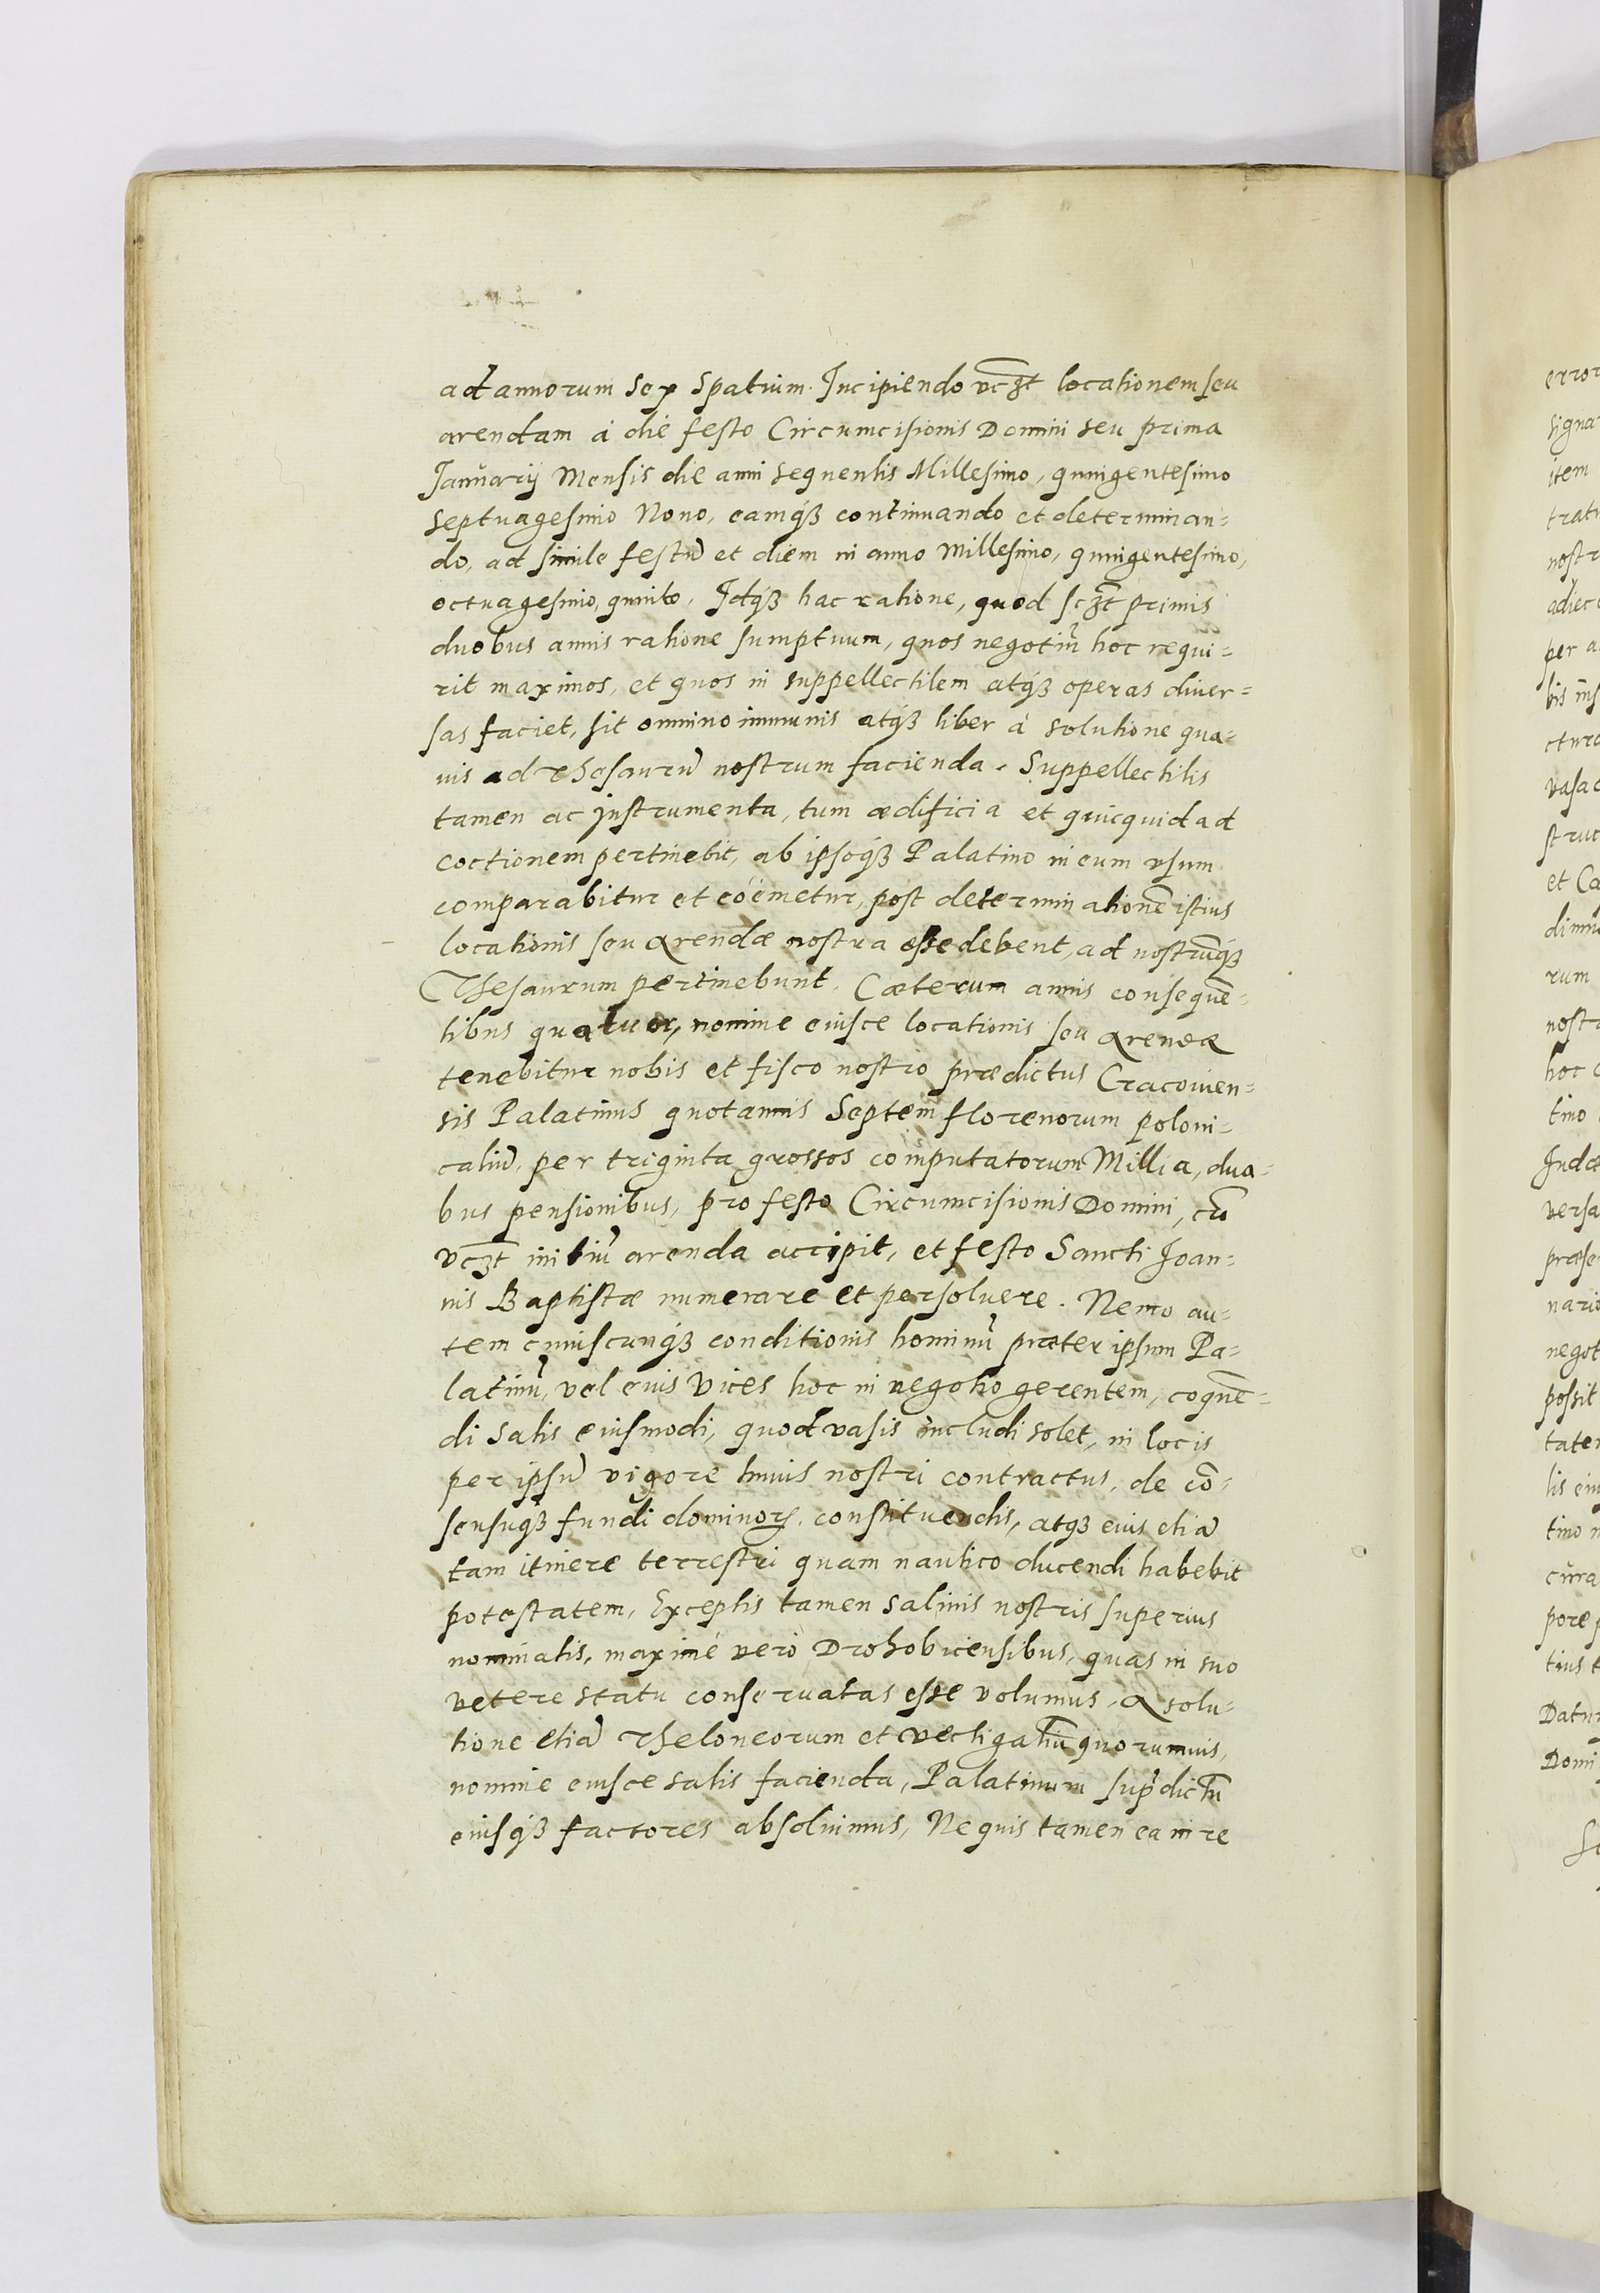 ad annorum sex spatium. Incipiendo vczt locationem seu
arendam à die festo Circumcisionis Domini seu prima
Januarij Mensis die anni sequentis Millesimo, quingentesimo
septuagesimo Nono, eamq́ꝫ continuando et determinan=
do, ad simile festũ et diem in anno Millesimo, quingentesimo,
octuagesimo, quinto. Idq́ꝫ hac ratione, quod sczt primis
duobus annis ratione sumptuum, quos negotiũ hoc requi=
rit maximos, et quos in suppellectilem atq́ꝫ operas diuer=
sas faciet, sit omnino immunis atq́ꝫ liber à solutione qua=
uis ad Thesaurũ nostrum facienda. Suppellectilis
tamen ac Instrumenta, tum ædificia et quicquid ad
coctionem pertinebit, ab ipsoq́ꝫ Palatino in eum vsum
comparabitur et coëmetur, post determinationẽ istius
locationis seu Arendæ nostra esse debent, ad nostrũq́ꝫ
Thesaurum pertinebunt. Cæterum annis consequẽ=
tibus quatuor, nomine eiusce locationis seu Arendæ
tenebitur nobis et fisco nostro prædictus Cracouien=
sis Palatinus quotannis Septem florenorum poloni=
caliũ, per triginta grossos computatorum Millia, dua=
bus pensionibus, pro festo Circumcisionis Domini, cũ
vczt initiũ arenda accipit, et festo Sancti Joan=
nis Baptistæ numerare et persoluere. Nemo au=
tem cuiuscunq́ꝫ conditionis hominũ præter ipsum Pa=
latinũ, vel eius vices hoc in negotio gerentem, coquẽ=
di salis eiusmodi, quod vasis includi solet, in locis
per ipsũ vigore huius nostri contractus, de cõ=
sensuq́ꝫ fundi dominoꝝ, constituendis, atqꝫ eius etiã
tam itinere terrestri quam nautico ducendi habebit
potestatem, Exceptis tamen salinis nostris superius
nominatis, maximè verò Drohobicensibus, quas in suo
vetere statu conseruatas esse volumus, A solu=
tione etiã Theloneorum et vectigaliũ quorumuis,
nomine eiusce salis facienda, Palatinum sup̃dictũ
eiusq́ꝫ factores absoluimus, Ne quis tamen ea in re